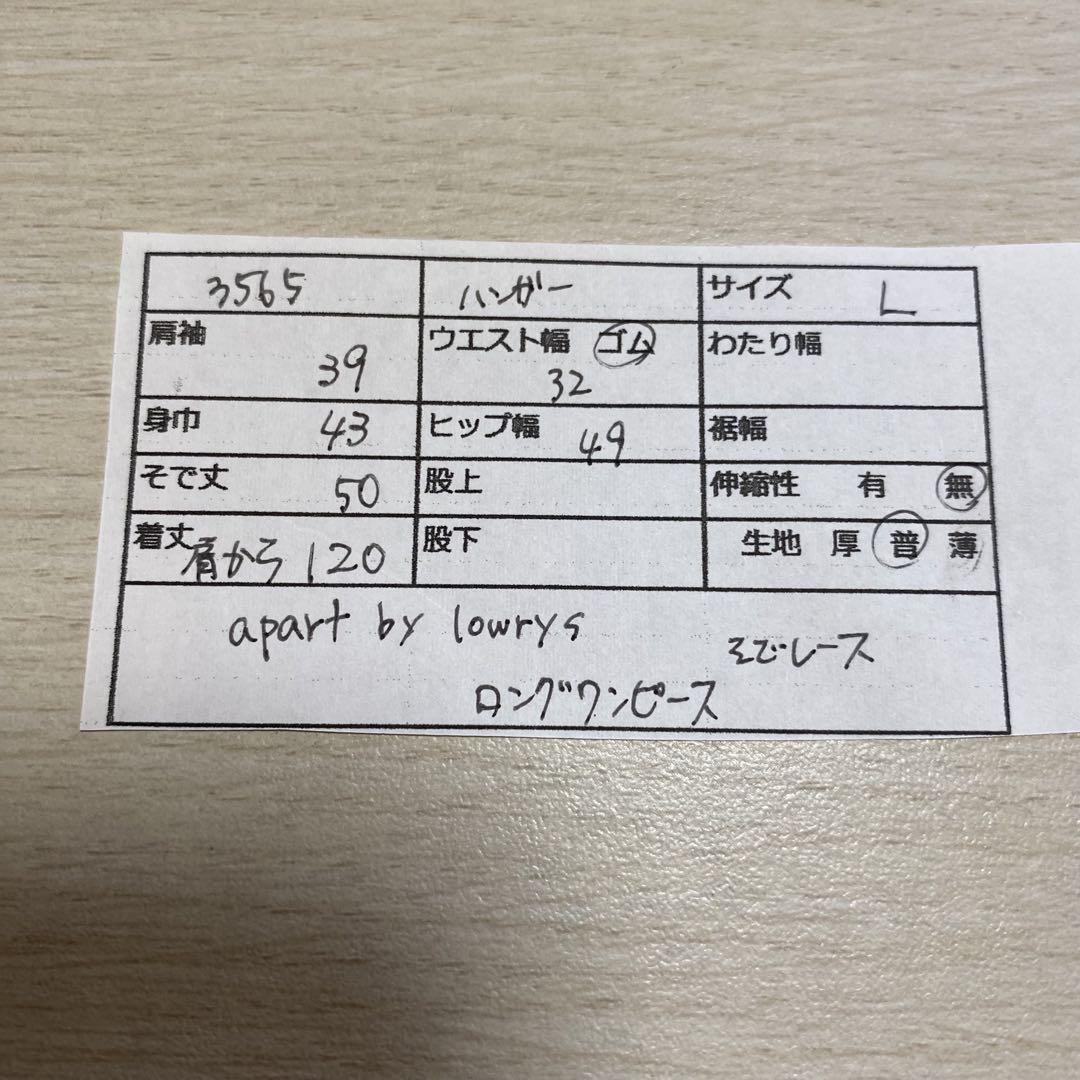 3565 ハンガー サイズ L
肩袖 39 ウエスト幅 ゴム 32 わたり幅
身巾 43 ヒップ幅 49 裾幅
そで丈 50 股上 伸縮性 有 無
着丈 肩から 120 股下 生地 厚 普 薄
apart by lowrys
そでレース
ロングワンピース